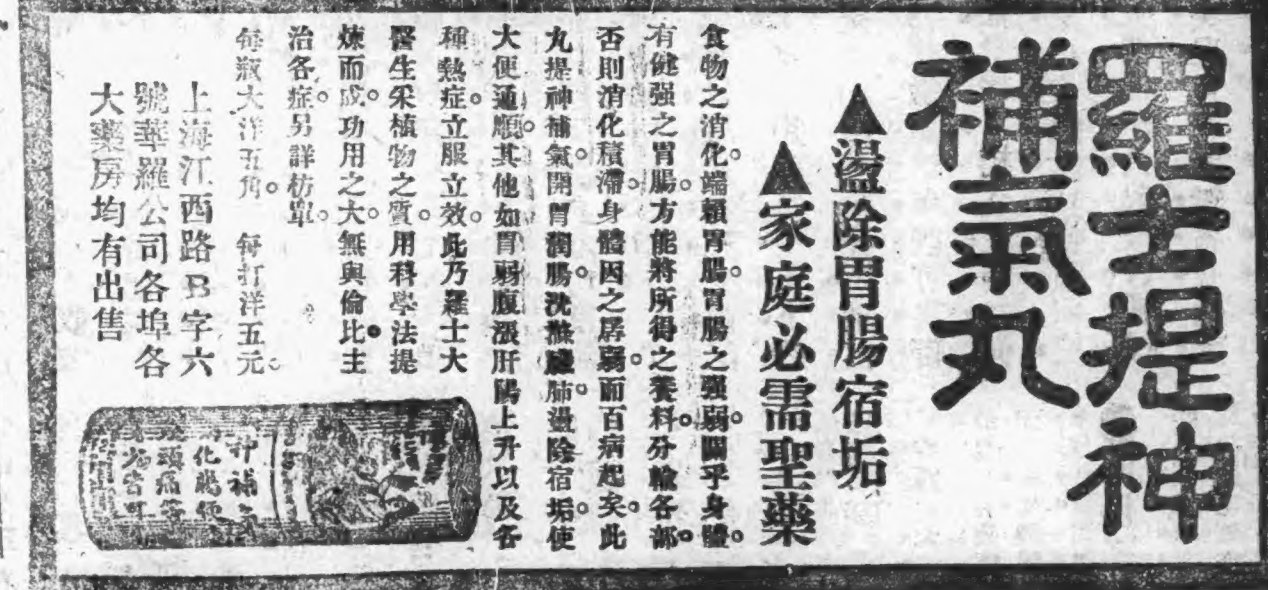 羅士提神
補氣丸
▲盪除胃腸宿垢
▲家庭必需聖藥
食物之消化。端賴胃腸。胃腸之强弱。關乎身體。
有健强之胃腸。方能將所得之養料。分輸各部。
否則消化積滯。身體因之孱弱。而百病起矣。此
丸提神補氣。開胃潤腸。洗滌臟肺。盪除宿垢。使
大便通順。其他如胃弱腹漲肝陽上升以及各
種熱症。立服立效。此乃羅士大
醫生采植物之質。用科學法提
煉而成。功用之大。無與倫比。主
治各症。另詳仿單。
每瓶大洋五角。每打洋五元。
上海江西路B字六
號華羅公司各埠各
大藥房均有出售
神補氣
化腸便
頭痛等